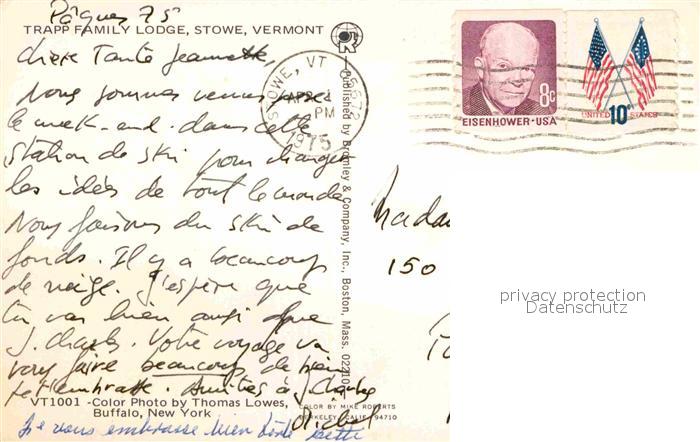 Pâques 75
TRAPP FAMILY LODGE, STOWE, VERMONT
Chère Tante Jeannette,
Nous sommes venus passer
le week-end dans cette
station de ski pour changer
les idées de tout le monde
Nous faisons du ski de
fonds. Il y a beaucoup
de neige. J'espère que
tu vas bien ainsi que
J. Charles. Votre voyage va
vous faire beaucoup de bien
je t'embrasse. Amitiés à J. Charles
VT1001 -Color Photo by Thomas Lowes,
Buffalo, New York
Michel
je vous embrasse bien
STOWE, VT 05672
APR
PM
1975
Published by Bromley & Company, Inc., Boston, Mass. 02210
COLOR BY MIKE ROBERTS
BERKELEY, CALIF. 94710
8c
EISENHOWER·USA
UNITED 10c STATES
Madam
150
privacy protection
Datenschutz